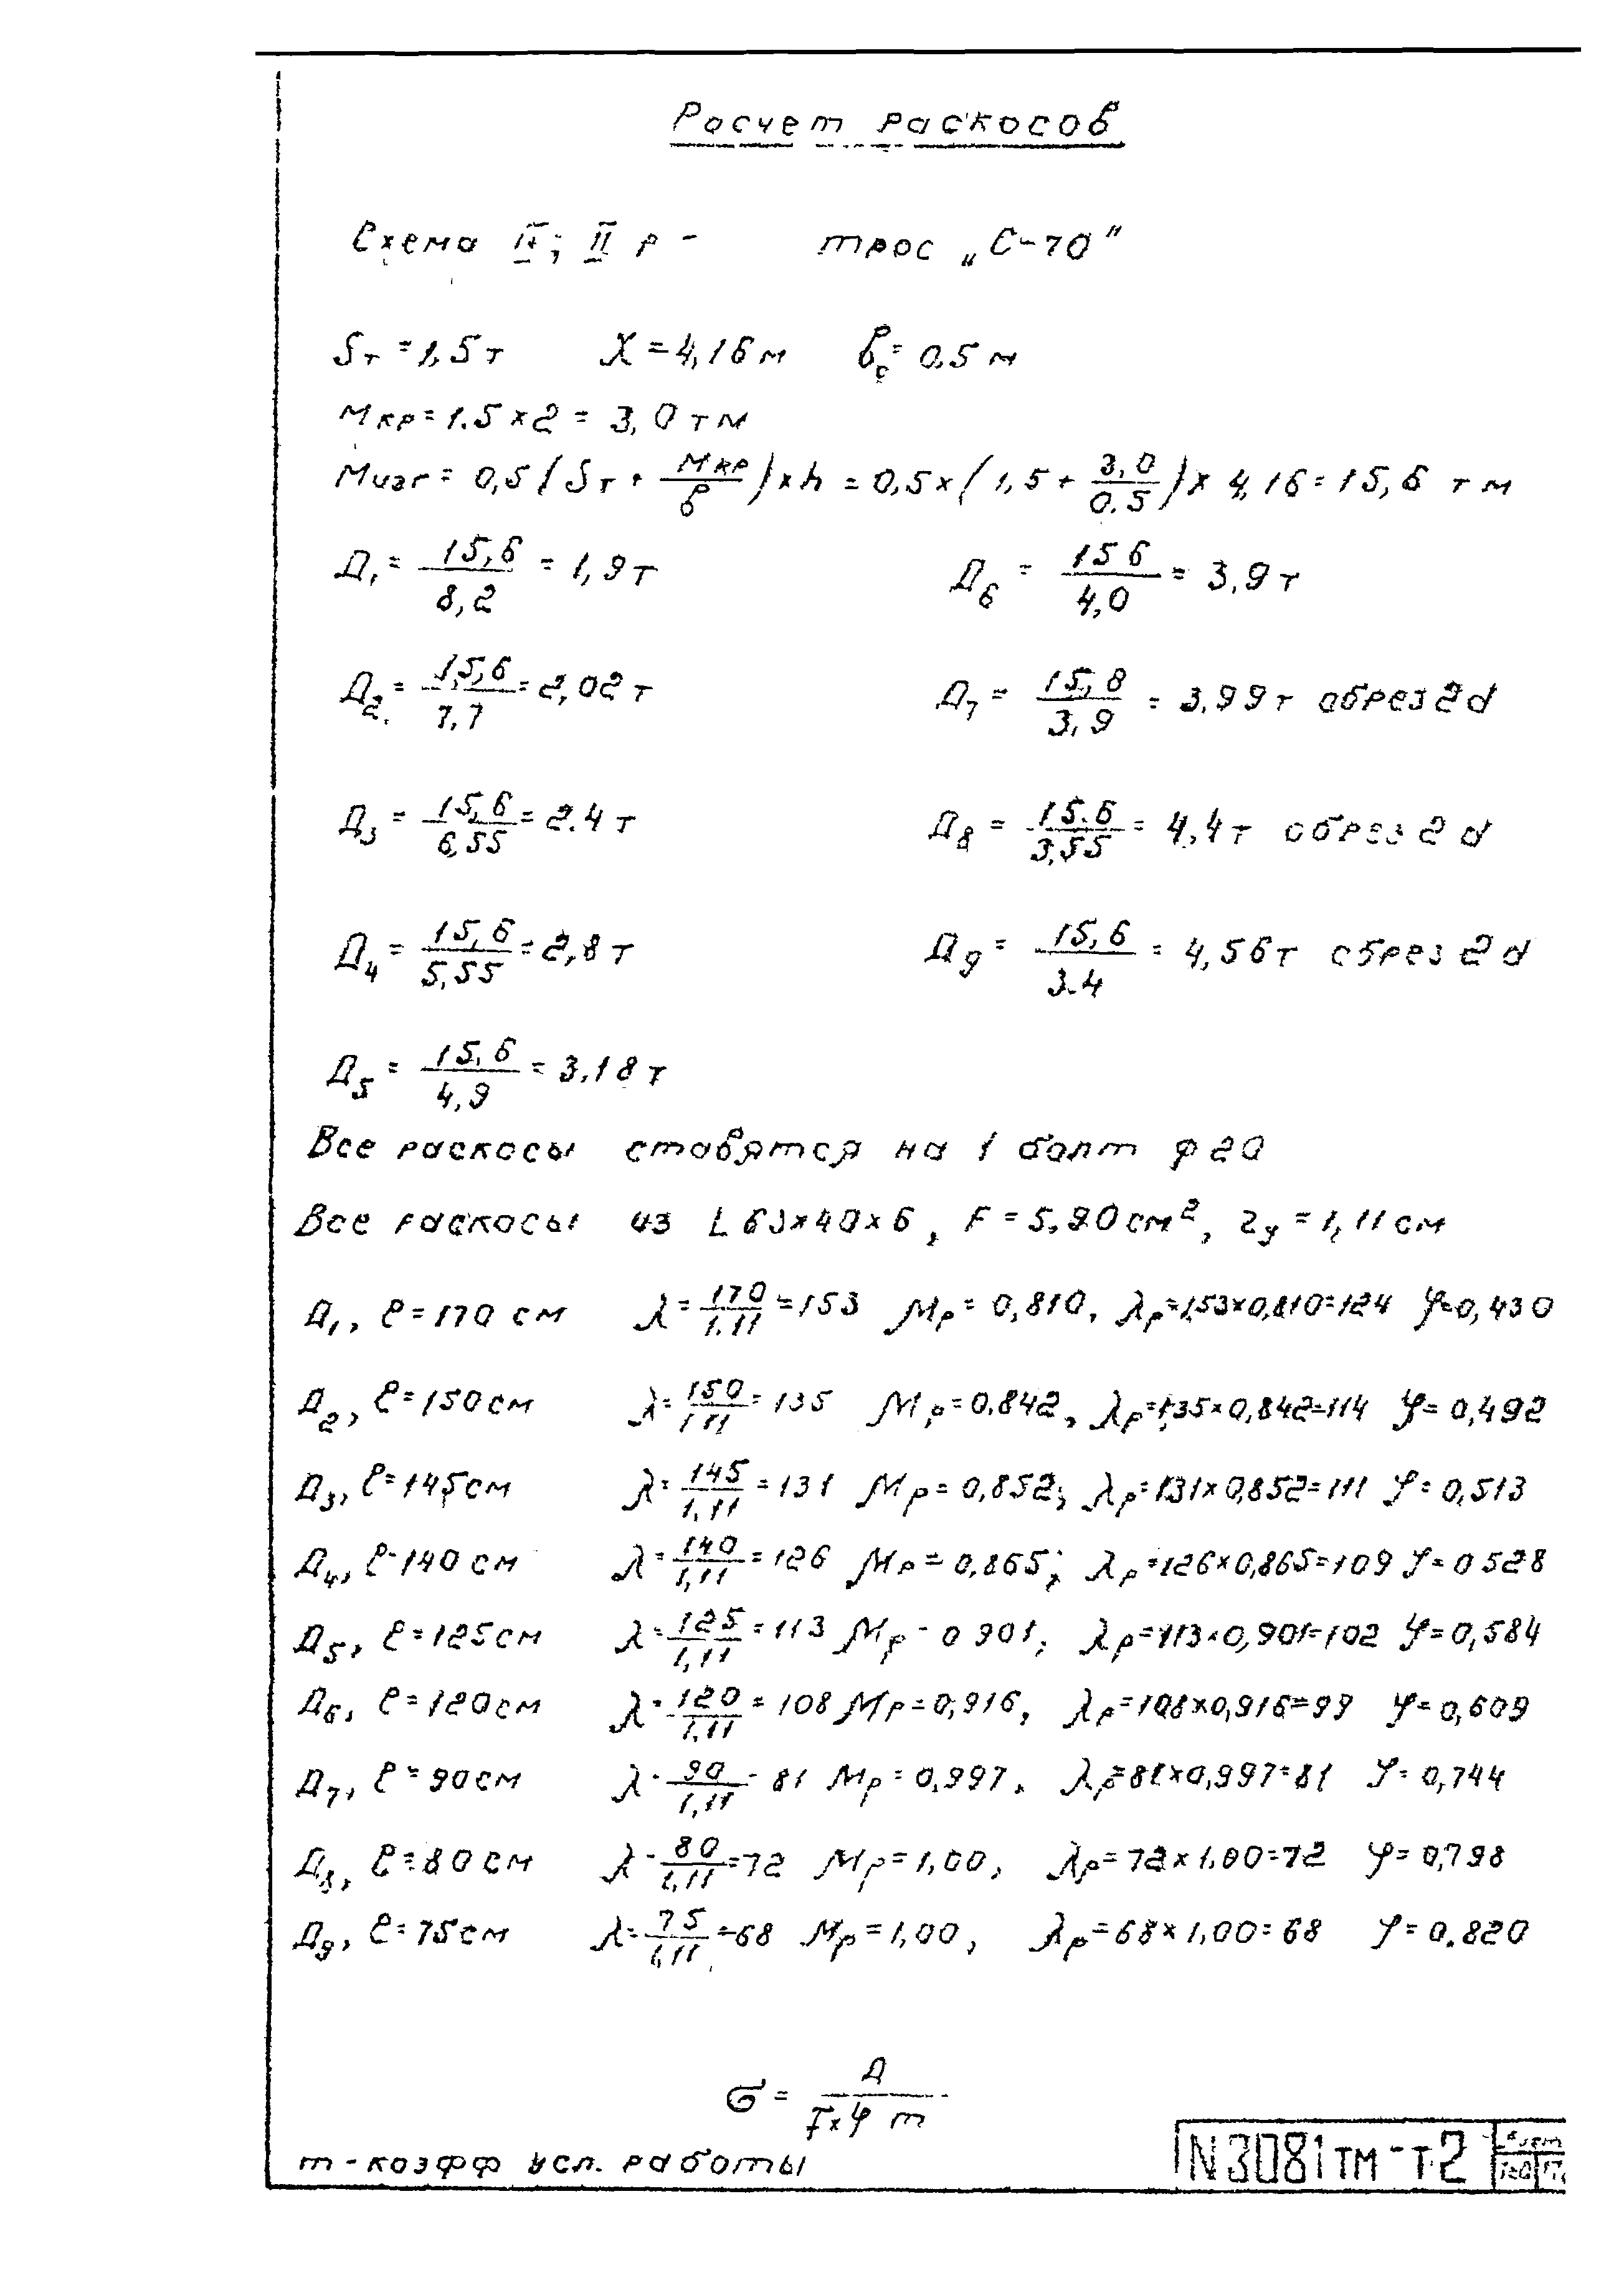 Расчет раскосов
Схема IV; II р - трос „С-70"
Sт = 1,5 т X = 4,16 м bс = 0,5 м
Мкр = 1.5 × 2 = 3,0 тм
Мизг = 0,5 (Sт + Мкр/b) × h = 0,5 × (1,5 + 3,0/0.5) × 4,16 = 15,6 тм
Д1 = 15,6/8,2 = 1,9 т Д6 = 15 6/4,0 = 3,9 т
Д2 = 15,6/7,7 = 2,02 т Д7 = 15,8/3,9 = 3,99 т обрез 2d
Д3 = 15,6/6,55 = 2.4 т Д8 = 15.6/3,55 = 4,4 т обрез 2d
Д4 = 15,6/5,55 = 2,8 т Д9 = 15,6/3.4 = 4,56 т обрез 2d
Д5 = 15.6/4,9 = 3,18 т
Все раскосы ставятся на 1 болт φ20
Все раскосы из L 63×40×6, F = 5,90 см², ry = 1,11 см
Д1, ℓ = 170 см λ = 170/1.11 = 153 Мр = 0,810, λр = 153×0,810 = 124 φ = 0,430
Д2, ℓ = 150 см λ = 150/1,11 = 135 Мр = 0.842, λр = 135×0,842 = 114 φ = 0,492
Д3, ℓ = 145 см λ = 145/1,11 = 131 Мр = 0,852; λр = 131×0,852 = 111 φ = 0,513
Д4, ℓ = 140 см λ = 140/1,11 = 126 Мр = 0,865; λр = 126×0,865 = 109 φ = 0 528
Д5, ℓ = 125 см λ = 125/1,11 = 113 Мр - 0 901; λр = 113×0,901 = 102 φ = 0,584
Д6, ℓ = 120 см λ = 120/1,11 = 108 Мр = 0,916, λр = 108×0,916 = 99 φ = 0,609
Д7, ℓ = 90 см λ = 90/1,11 = 81 Мр = 0,997, λр = 81×0,997 = 81 φ = 0,744
Д8, ℓ = 80 см λ = 80/1,11 = 72 Мр = 1,00, λр = 72×1,00 = 72 φ = 0,798
Д9, ℓ = 75 см λ = 75/1,11 = 68 Мр = 1,00, λр = 68×1,00 = 68 φ = 0.820
σ = Д/F×φ m
m - коэфф усл. работы
N3081тм-т2